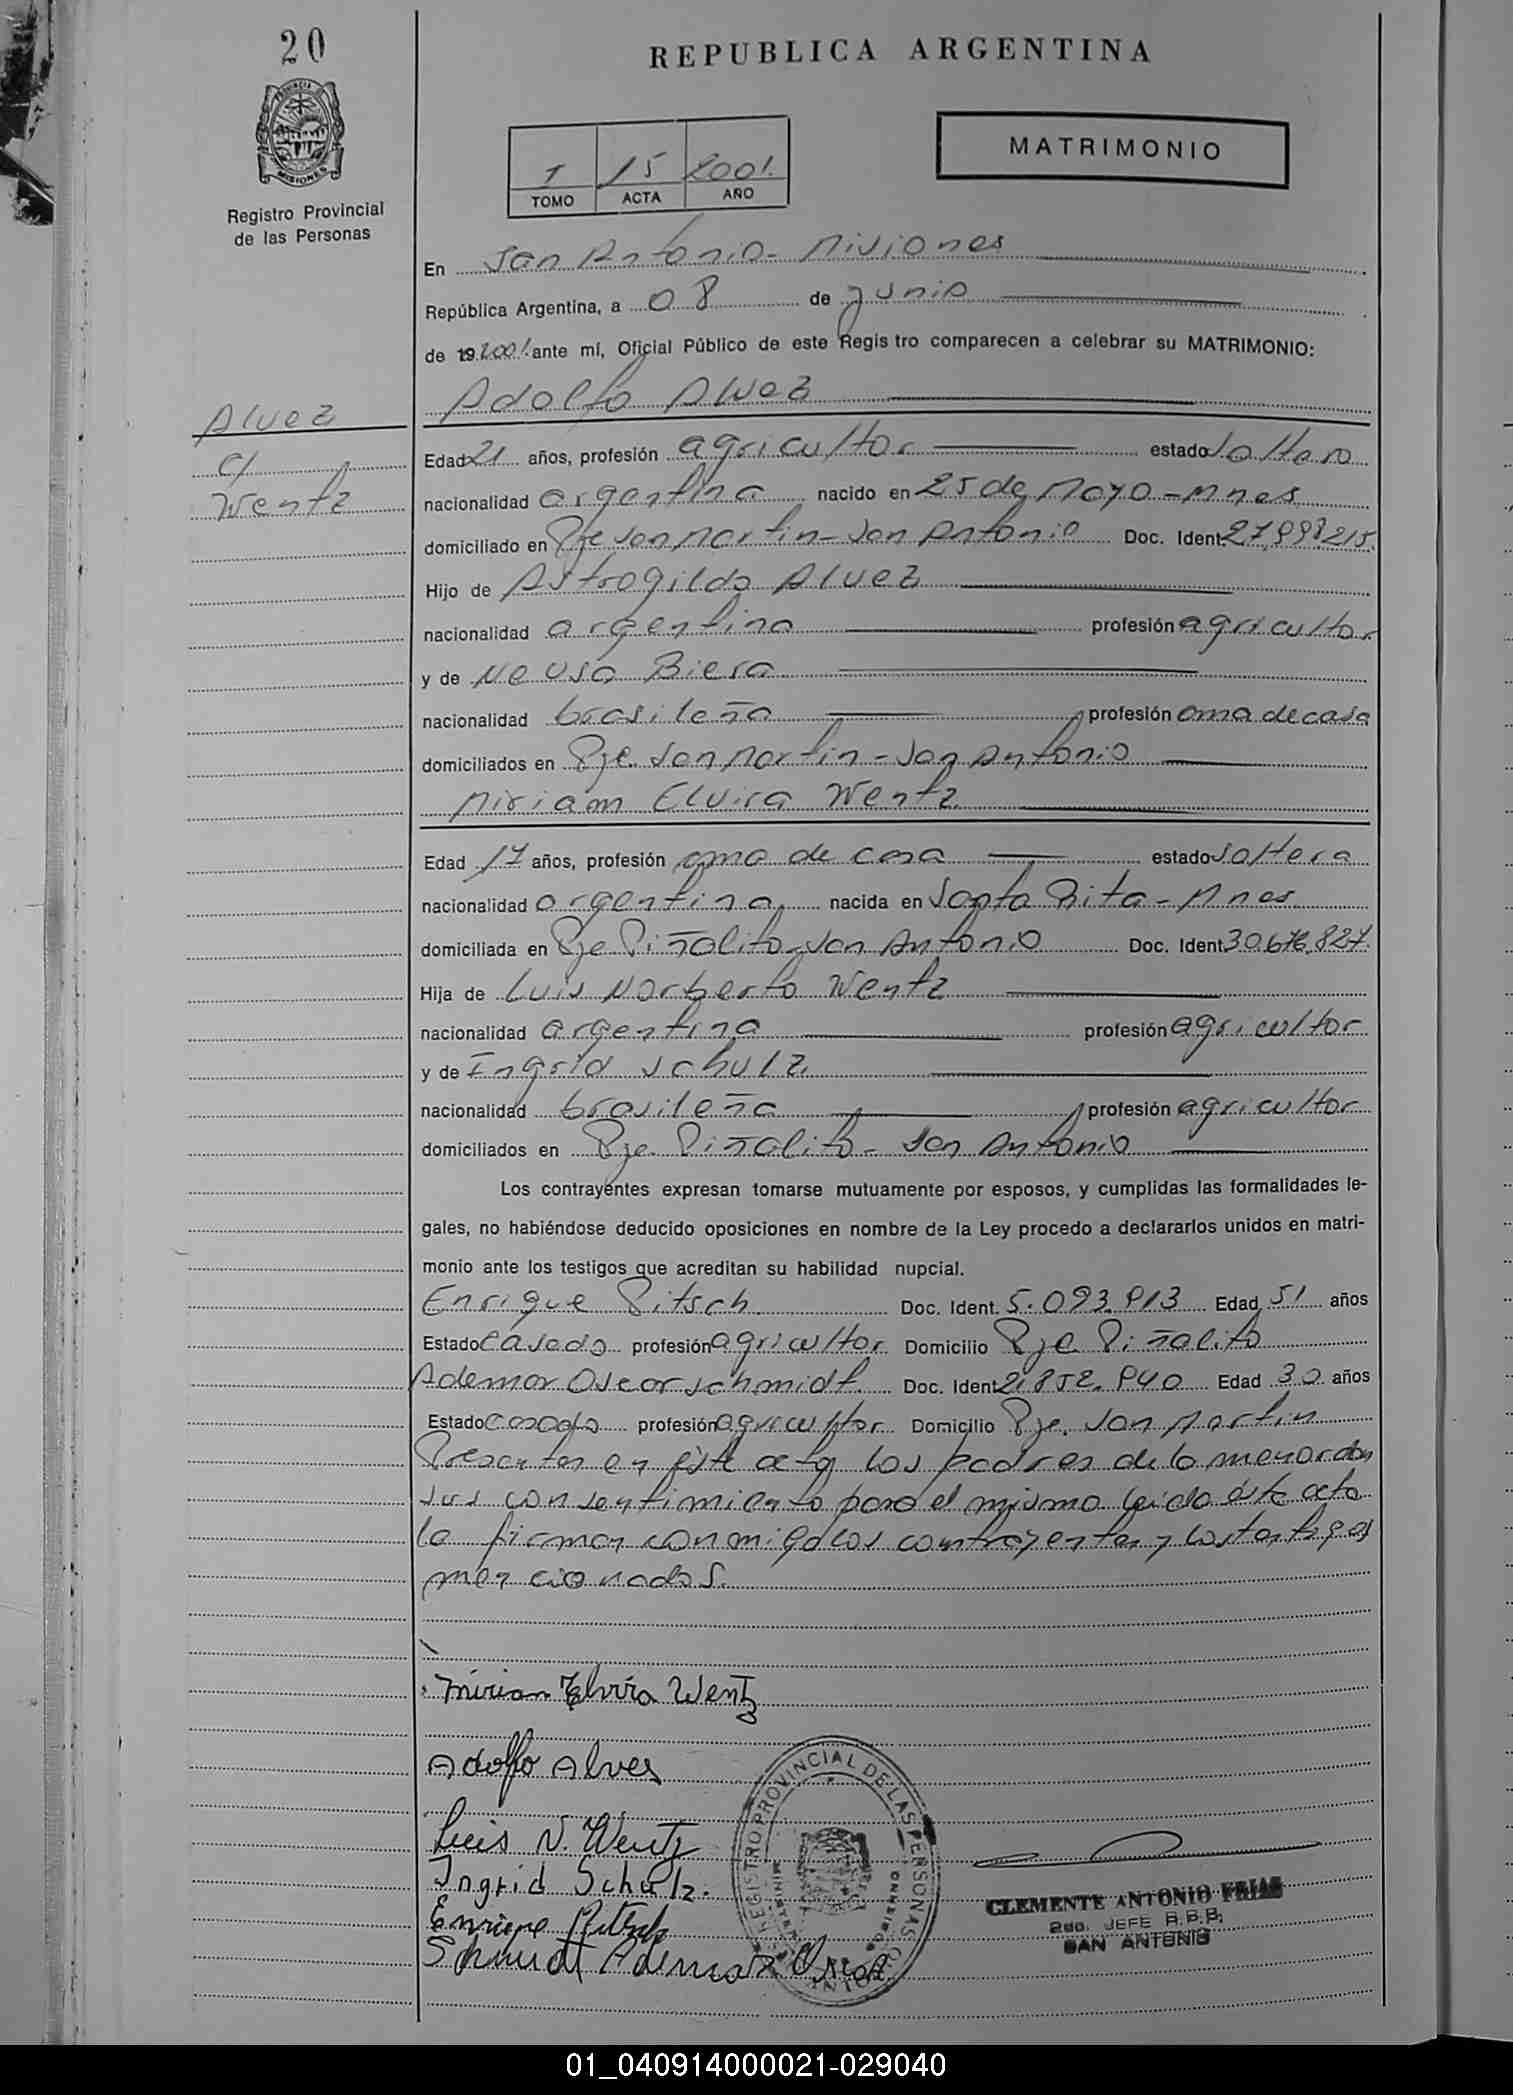 20
REPUBLICA ARGENTINA
PROVINCIA DE
MISIONES
Registro Provincial
de las Personas
1 15 2001.
TOMO ACTA AÑO
MATRIMONIO
En San Antonio - Misiones
República Argentina, a 08 de junio
de 19 2001 ante mí, Oficial Público de este Regis tro comparecen a celebrar su MATRIMONIO:
Adolfo Alvez
Alvez
c/
Wentz
Edad 21 años, profesión agricultor estado soltero
nacionalidad argentina nacido en 25 de Mayo - Mnes
domiciliado en Pje San Martin - San Antonio Doc. Ident. 27.998.215.
Hijo de Astrogildo Alvez
nacionalidad argentina profesión agricultor
y de Neusa Biera
nacionalidad brasileña profesión ama de casa
domiciliados en Pje. San Martin - San Antonio
Miriam Elvira Wentz
Edad 17 años, profesión ama de casa estado soltera
nacionalidad argentina nacida en Santa Rita - Mnes
domiciliada en Pje Piñalito - San Antonio Doc. Ident. 30.676.827.
Hija de Luis Norberto Wentz
nacionalidad argentina profesión agricultor
y de Ingrid Schulz
nacionalidad brasileña profesión agricultor
domiciliados en Pje. Piñalito - San Antonio
Los contrayentes expresan tomarse mutuamente por esposos, y cumplidas las formalidades le-
gales, no habiéndose deducido oposiciones en nombre de la Ley procedo a declararlos unidos en matri-
monio ante los testigos que acreditan su habilidad nupcial.
Enrique Pitsch Doc. Ident. 5.093.913 Edad 51 años
Estado casado profesión agricultor Domicilio Pje Piñalito
Ademar Oscar Schmidt. Doc. Ident. 21.852.940 Edad 30 años
Estado casado profesión agricultor Domicilio Pje. San Martin
Presentes en éste acta los padres de la menor dan
sus consentimiento para el mismo leida ésta acta
la firman conmigo los contrayentes y los testigos
mencionados.
Mirian Elvira Wentz
Adolfo Alves
Luis N. Wentz
Ingrid Schulz.
Enrique Pitsch
Schmidt Ademar Oscar
REGISTRO PROVINCIAL DE LAS PERSONAS
SAN ANTONIO
CLEMENTE ANTONIO FRIAS
2do. JEFE R.P.P.
SAN ANTONIO
01_040914000021-029040